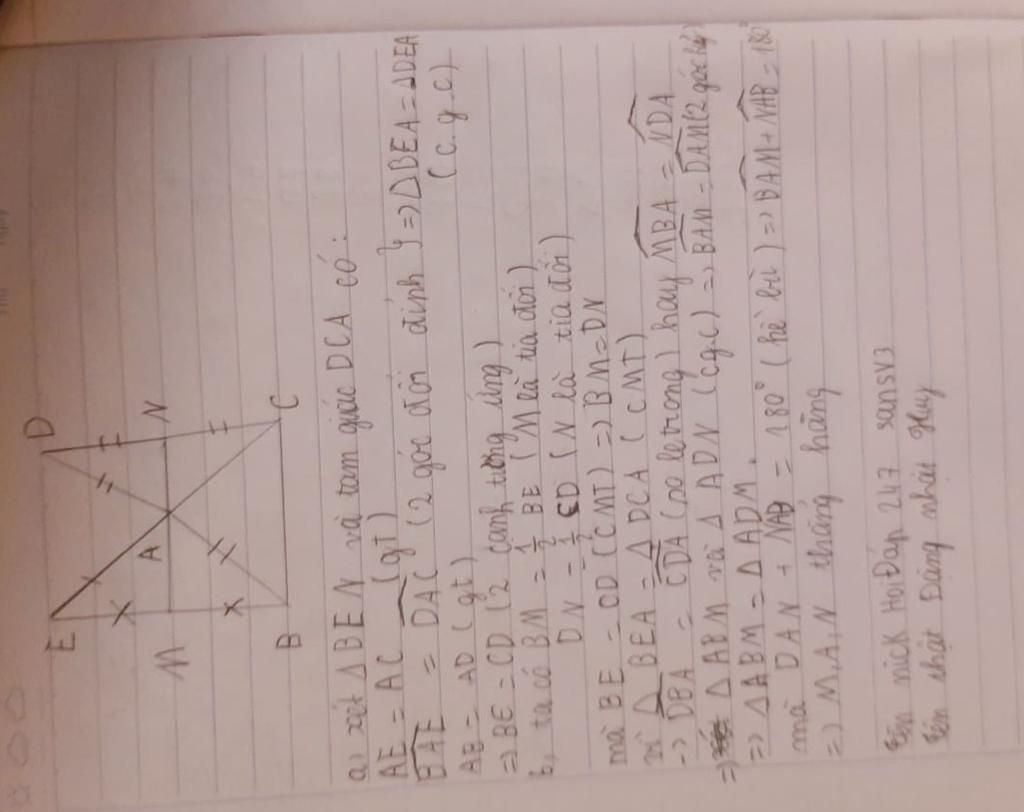 E
D
M
A
N
B
C
a) xét ΔBEN và tam giác DCA có:
AE = AC (gt)
BAE = DAC (2 góc đối đỉnh } => ΔBEA = ΔDEA
AB = AD (gt) (c.g.c)
=> BE = CD (2 cạnh tường ứng)
b, ta có BM = 1/2 BE (M là tia đối)
DN = 1/2 CD (N là tia đối)
mà BE = CD (CMT) => BM = DN
vì ΔBEA = ΔDCA (CMT)
-> DBA = CDA (so le trong) hay MBA = NDA
=> ΔABM và ΔADN (c.g.c) => BAM = DAN (2 góc
=> ΔABM = ΔADM.
mà DAN + NAB = 180° (kề bù) => BAM + NAB = 180°
=> M, A, N thẳng hàng
Tên nick HoiĐáp 247 sansv3
Tên nhật Đăng nhật Huy